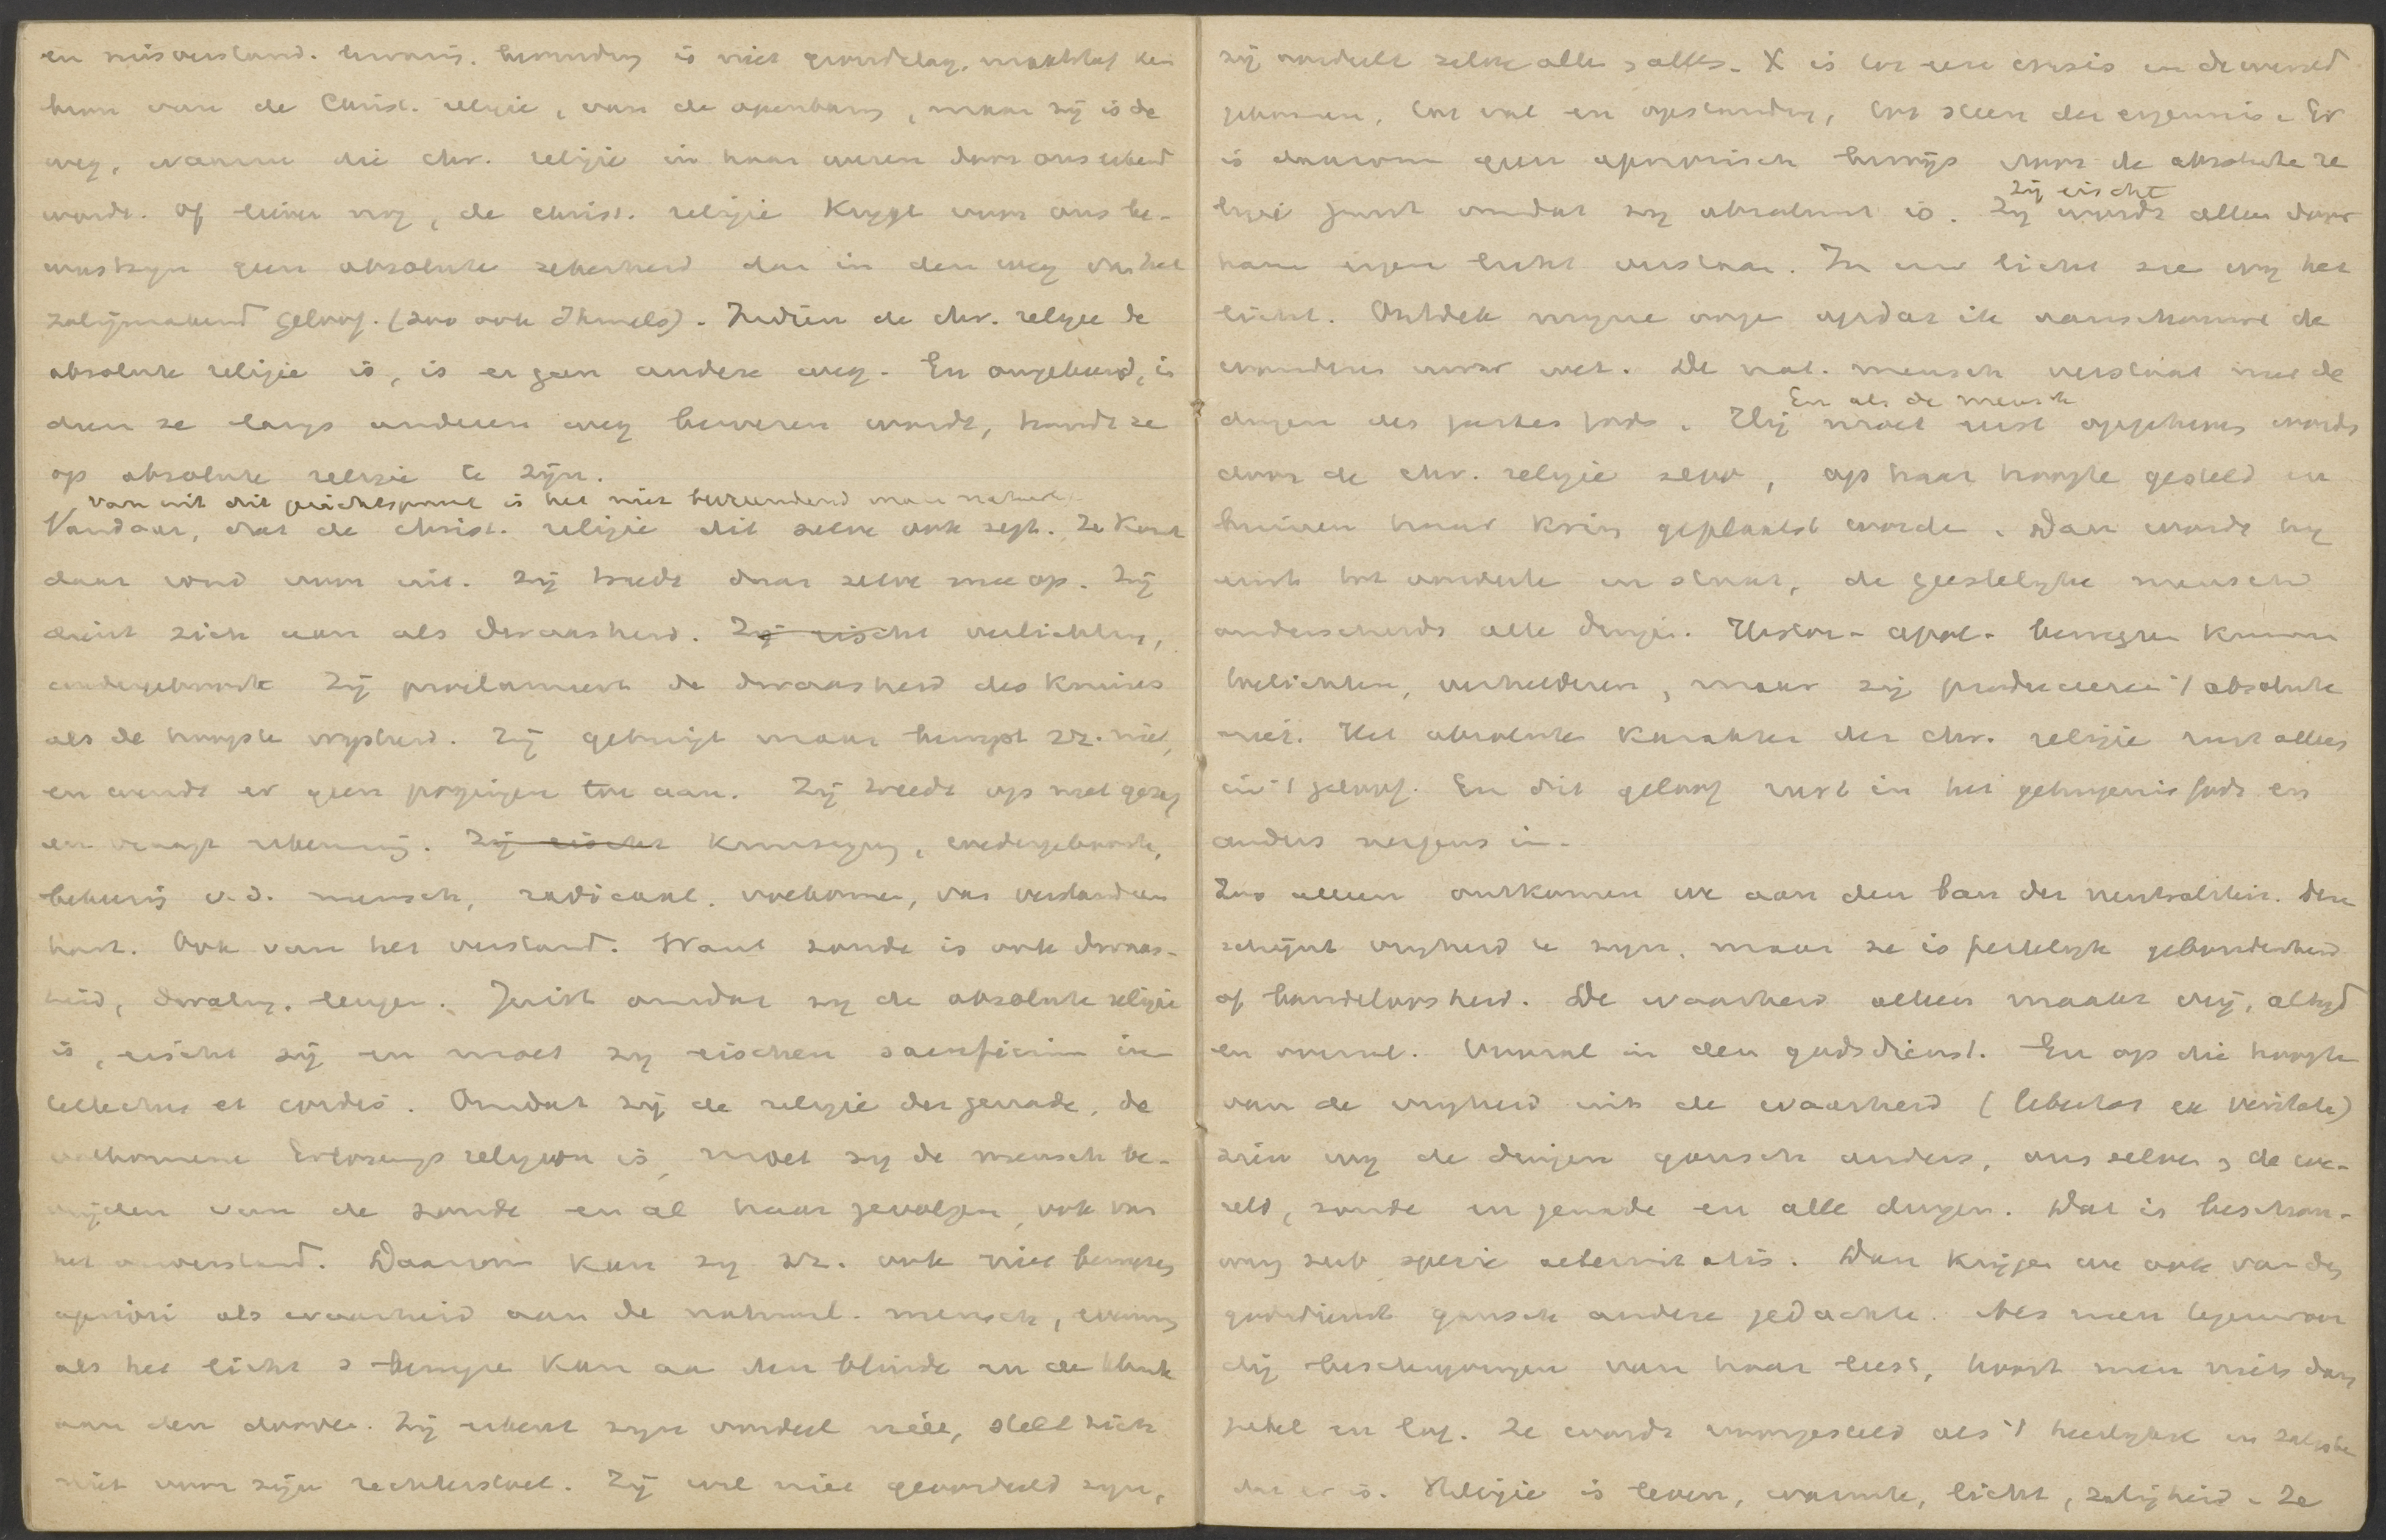 en misverstand. ervaring. bevinding is niet grondslag. maatstaf ken
bron van de Christ. religie, van de openbaring, maar zij is de
weg, waarin die chr. religie in haar wezen door ons erkend
wordt. Of liever nog, de christ. religie krijgt voor ons be-
wustzijn geen absolute zekerheid dan in den weg van het
zaligmakend geloof. (zoo ook Ihmels). Indien de chr. religie de
absolute religie is, is er geen andere weg. En omgekeerd, in
dien ze langs anderen weg bewezen wordt, houdt ze
op absolute religie te zijn.
Van uit dit gezichtspunt is het niet bevreemdend maar natuurl.
Vandaar, dat de christ. religie dit zelve ook zegt. Ze komt
daar rond voor uit. Zij treedt daar zelve mee op. Zij
dient zich aan als dwaasheid. Zij eischt verlichting,
wedergeboorte Zij proclameert de dwaasheid des kruises
als de hoogste wijsheid. Zij getuigt maar bewijst zz. niet,
en wendt er geen pogingen toe aan. Zij treedt op met gezag
en vraagt erkenning. Zij eischt kruisiging, wedergeboorte,
bekeering v.d. mensch, radicaal. volkomen, van verstand en
hart. Ook van het verstand. Want zonde is ook dwaas-
heid, dwaling. leugen. Juist omdat zij de absolute religie
is, eischt zij en moet zij eischen sacrificium in
tellectus et cordis. Omdat zij de religie der genade, de
volkomene Erlösungsreligion is, moet zij de mensch be-
vrijden van de zonde en al haar gevolgen, ook van
het onverstand. Daarom kan zij zz. ook niet bewijzen
apriori als waarheid aan de natuurl. mensch, evenmin
als het licht z bewijzen kan aan den blinde en de klank
aan den doove. Zij erkent zijn oordeel niet, stelt zich
niet voor zijn rechterstoel. Zij wil niet geoordeeld zijn,
zij oordeelt zelve allen & alles. X is tot eene crisis in de wereld
gekomen, tot val en opstanding, tot steen der ergernis. Er
is daarom geen aprioristisch bewijs voor de absolute re
zij eischt
ligie juist omdat zij absoluut is. Zij wordt alleen door
haar eigen licht verstaan. In uw licht zie wij het
licht. Ontdek mijne oogen opdat ik aanschouwe de
wonderen uwer wet. De nat. mensch verstaat niet de
En als de mensch
dingen des geestes Gods. Hij moet eerst opgeheven words
door de chr. religie zelve, op haar hoogte gesteld en
binnen haar kring geplaatst worde. Dan wordt hij
ook tot oordeele in staat, de geestelijke mensch
onderscheidt alle dingen. Histor- apol- bewijzen kunnen
toelichten, verhelderen, maar zij produceeren 't absolute
niet. Het absolute karakter der chr. religie rust alleen
in 't geloof. En dit geloof rust in het getuigenis Gods en
anders nergens in.
Zoo alleen ontkomen we aan den ban der neutraliteit. Deze
schijnt vrijheid te zijn. maar ze is feitelijk gebondenheid
of bandeloosheid. De waarheid alleen maakt vrij, altijd
en overal. Vooral in den godsdienst. En op die hoogte
van de vrijheid uit de waarheid (libertas ex veritate)
zien wij de dingen gansch anders, ons zelven & de we-
reld, zonde en genade en alle dingen. Dat is beschou-
wing sub specie aeternitatis. Dan krijgen we ook van den
godsdienst gansch andere gedachte. Als men tegenwoor
dig beschrijvingen van haar leest, hoort men niets dan
jubel en lof. Ze wordt voorgesteld als 't heerlijkste en zaligste
dat er is. Religie is leven, warmte, licht, zaligheid. Ze